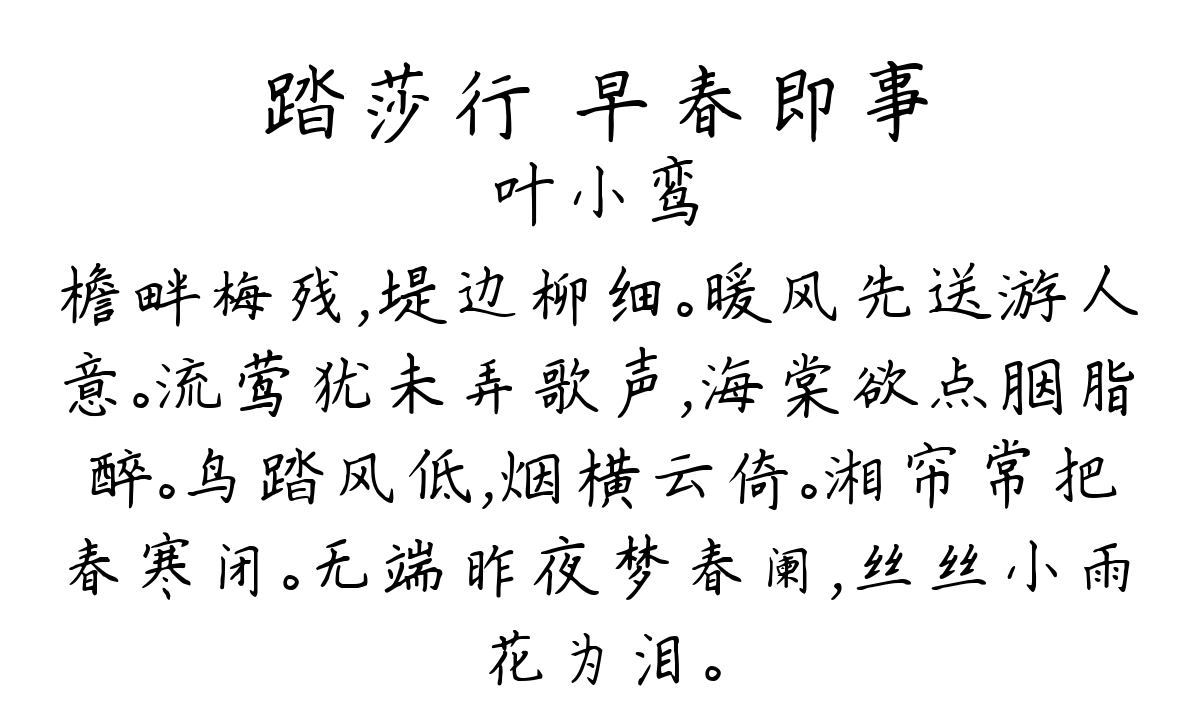 踏莎行 早春即事
叶小鸾
檐畔梅残,堤边柳细。暖风先送游人
意。流莺犹未弄歌声,海棠欲点胭脂
醉。鸟踏风低,烟横云倚。湘帘常把
春寒闭。无端昨夜梦春阑,丝丝小雨
花为泪。